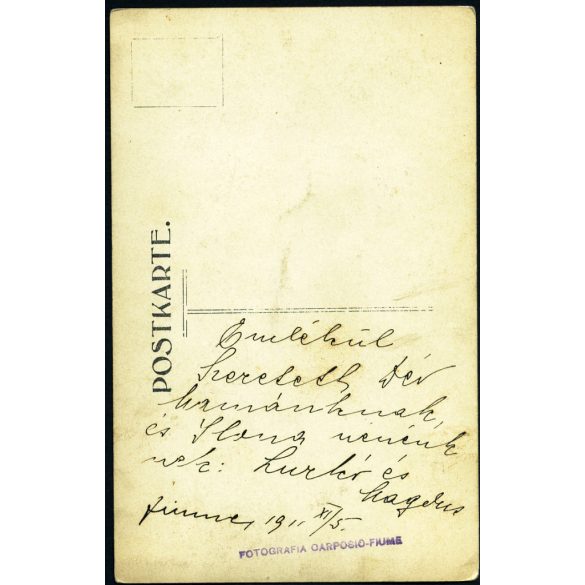 POSTKARTE.
Emlékül
Szeretett Dév
és Ilona nénénk
nek: Lurkó és
Magdus
Fiume, 1911 XI/5.
FOTOGRAFIA CARPOSIO-FIUME